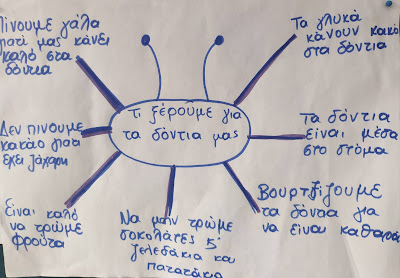 Πίνουμε γάλα
γιατί μας κάνει
καλό στα
δόντια
Τα γλυκά
κάνουν κακό
στα δόντια
Τι ξέρουμε για
τα δόντια μας
Δεν πινουμε
κακάο γιατί
έχει ζάχαρη
Τα δόντια
είναι μέσα
στο στόμα
Είναι καλό
να τρώμε
φρούτα
Να μην τρώμε
σοκολάτες
ζελεδάκια και
πατατάκια
Βουρτζίζουμε
τα δόντια για
να είναι καθαρά